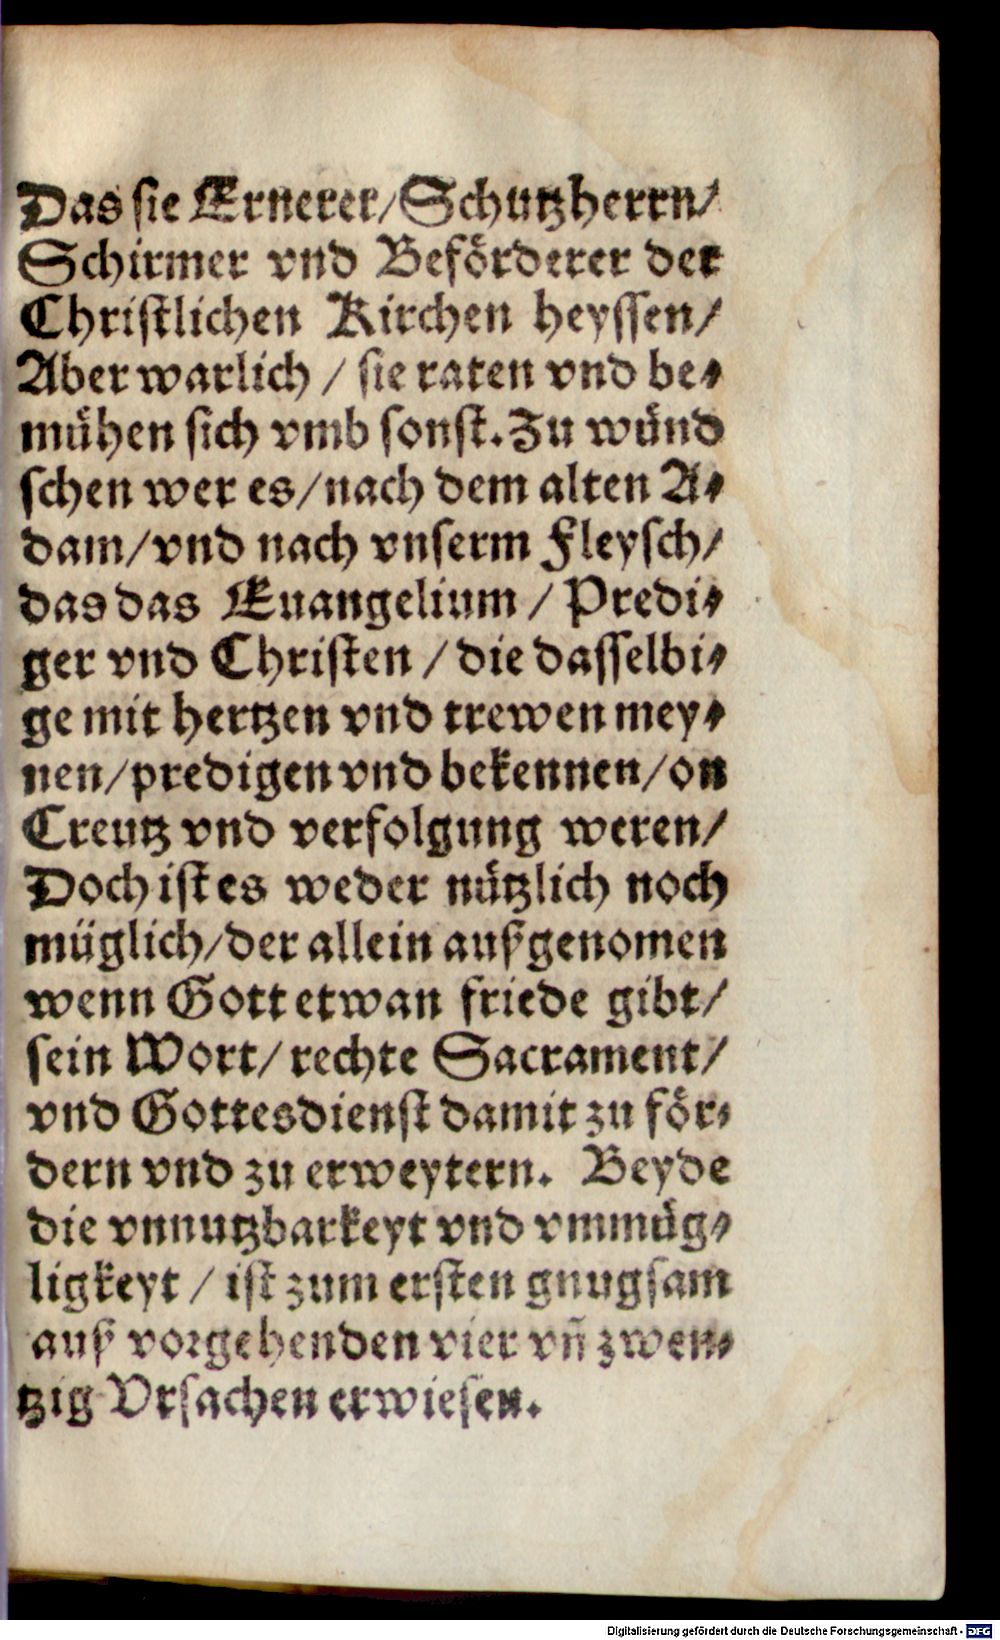 Das sie Ernerer/Schutzherrn/
Schirmer vnd Beförderer der
Christlichen Kirchen heyssen/
Aber warlich / sie raten vnd be⸗
mühen sich vmb sonst. Zu wünd
schen wer es/nach dem alten A⸗
dam/vnd nach vnserm Fleysch/
das das Euangelium / Predi⸗
ger vnd Christen / die dasselbi⸗
ge mit hertzen vnd trewen mey⸗
nen/predigen vnd bekennen/on
Creutz vnd verfolgung weren/
Doch ist es weder nützlich noch
müglich/der allein außgenomen
wenn Gott etwan friede gibt/
sein Wort/ rechte Sacrament/
vnd Gottesdienst damit zu för⸗
dern vnd zu erweytern. Beyde
die vnnutzbarkeyt vnd vmmüg⸗
ligkeyt / ist zum ersten gnugsam
auß vorgehenden vier vñ zwen⸗
tzig Vrsachen erwiesen.
Digitalisierung gefördert durch die Deutsche Forschungsgemeinschaft - DFG